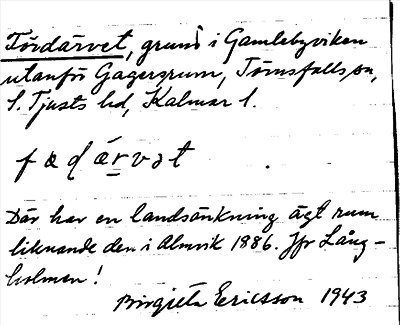 Fördärvet, grund i Gamlebyviken
utanför Gagersgrum, Törnsfalls sn,
S. Tjusts hd, Kalmar l.
fœḍœ́r̲vət
Där har en landsänkning ägt rum
liknande den i Almvik 1886. Jfr Lång-
holmen!
Birgieta Ericsson 1943